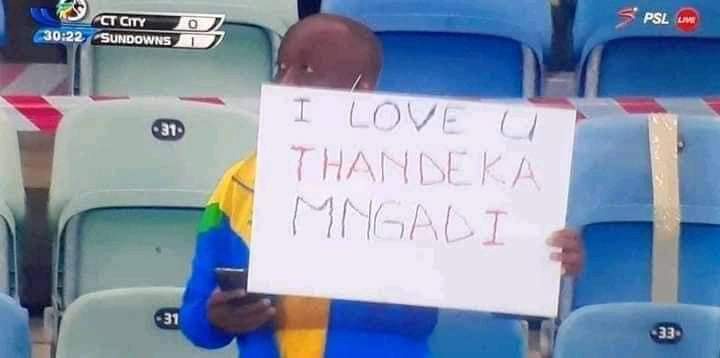 CT CITY 0
30:22 SUNDOWNS 1
PSL LIVE
I LOVE U
THANDEKA
MNGADI
31
31
33